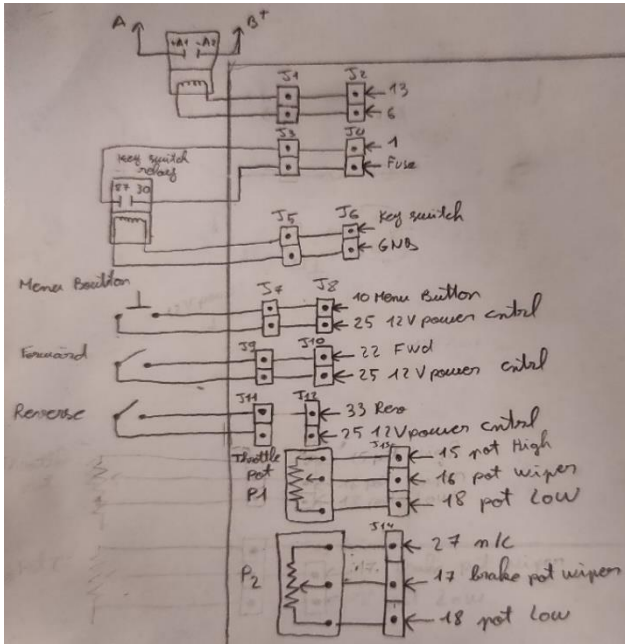 A B+
+A1 -A2
J1 J2
13
6
J3 J4
1
Fuse
Key switch
relay
87 30
J5 J6
Key switch
GND
Menu Boutton
J7 J8
10 Menu Button
25 12V power cntrl
Forward
J9 J10
22 Fwd
25 12V power cntrl
Reverse
J11 J12
33 Rev
25 12V power cntrl
Throttle
Pot
P1
J13
15 pot High
16 pot wiper
18 pot low
J14
P2
27 n/c
17 brake pot wiper
18 pot low